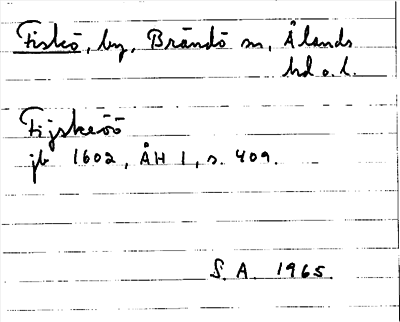 Fiskö, by, Brändö sn, Ålands
hd o. l.
Fijskeöö
jb 1602, ÅH 1, s. 409.
S. A. 1965